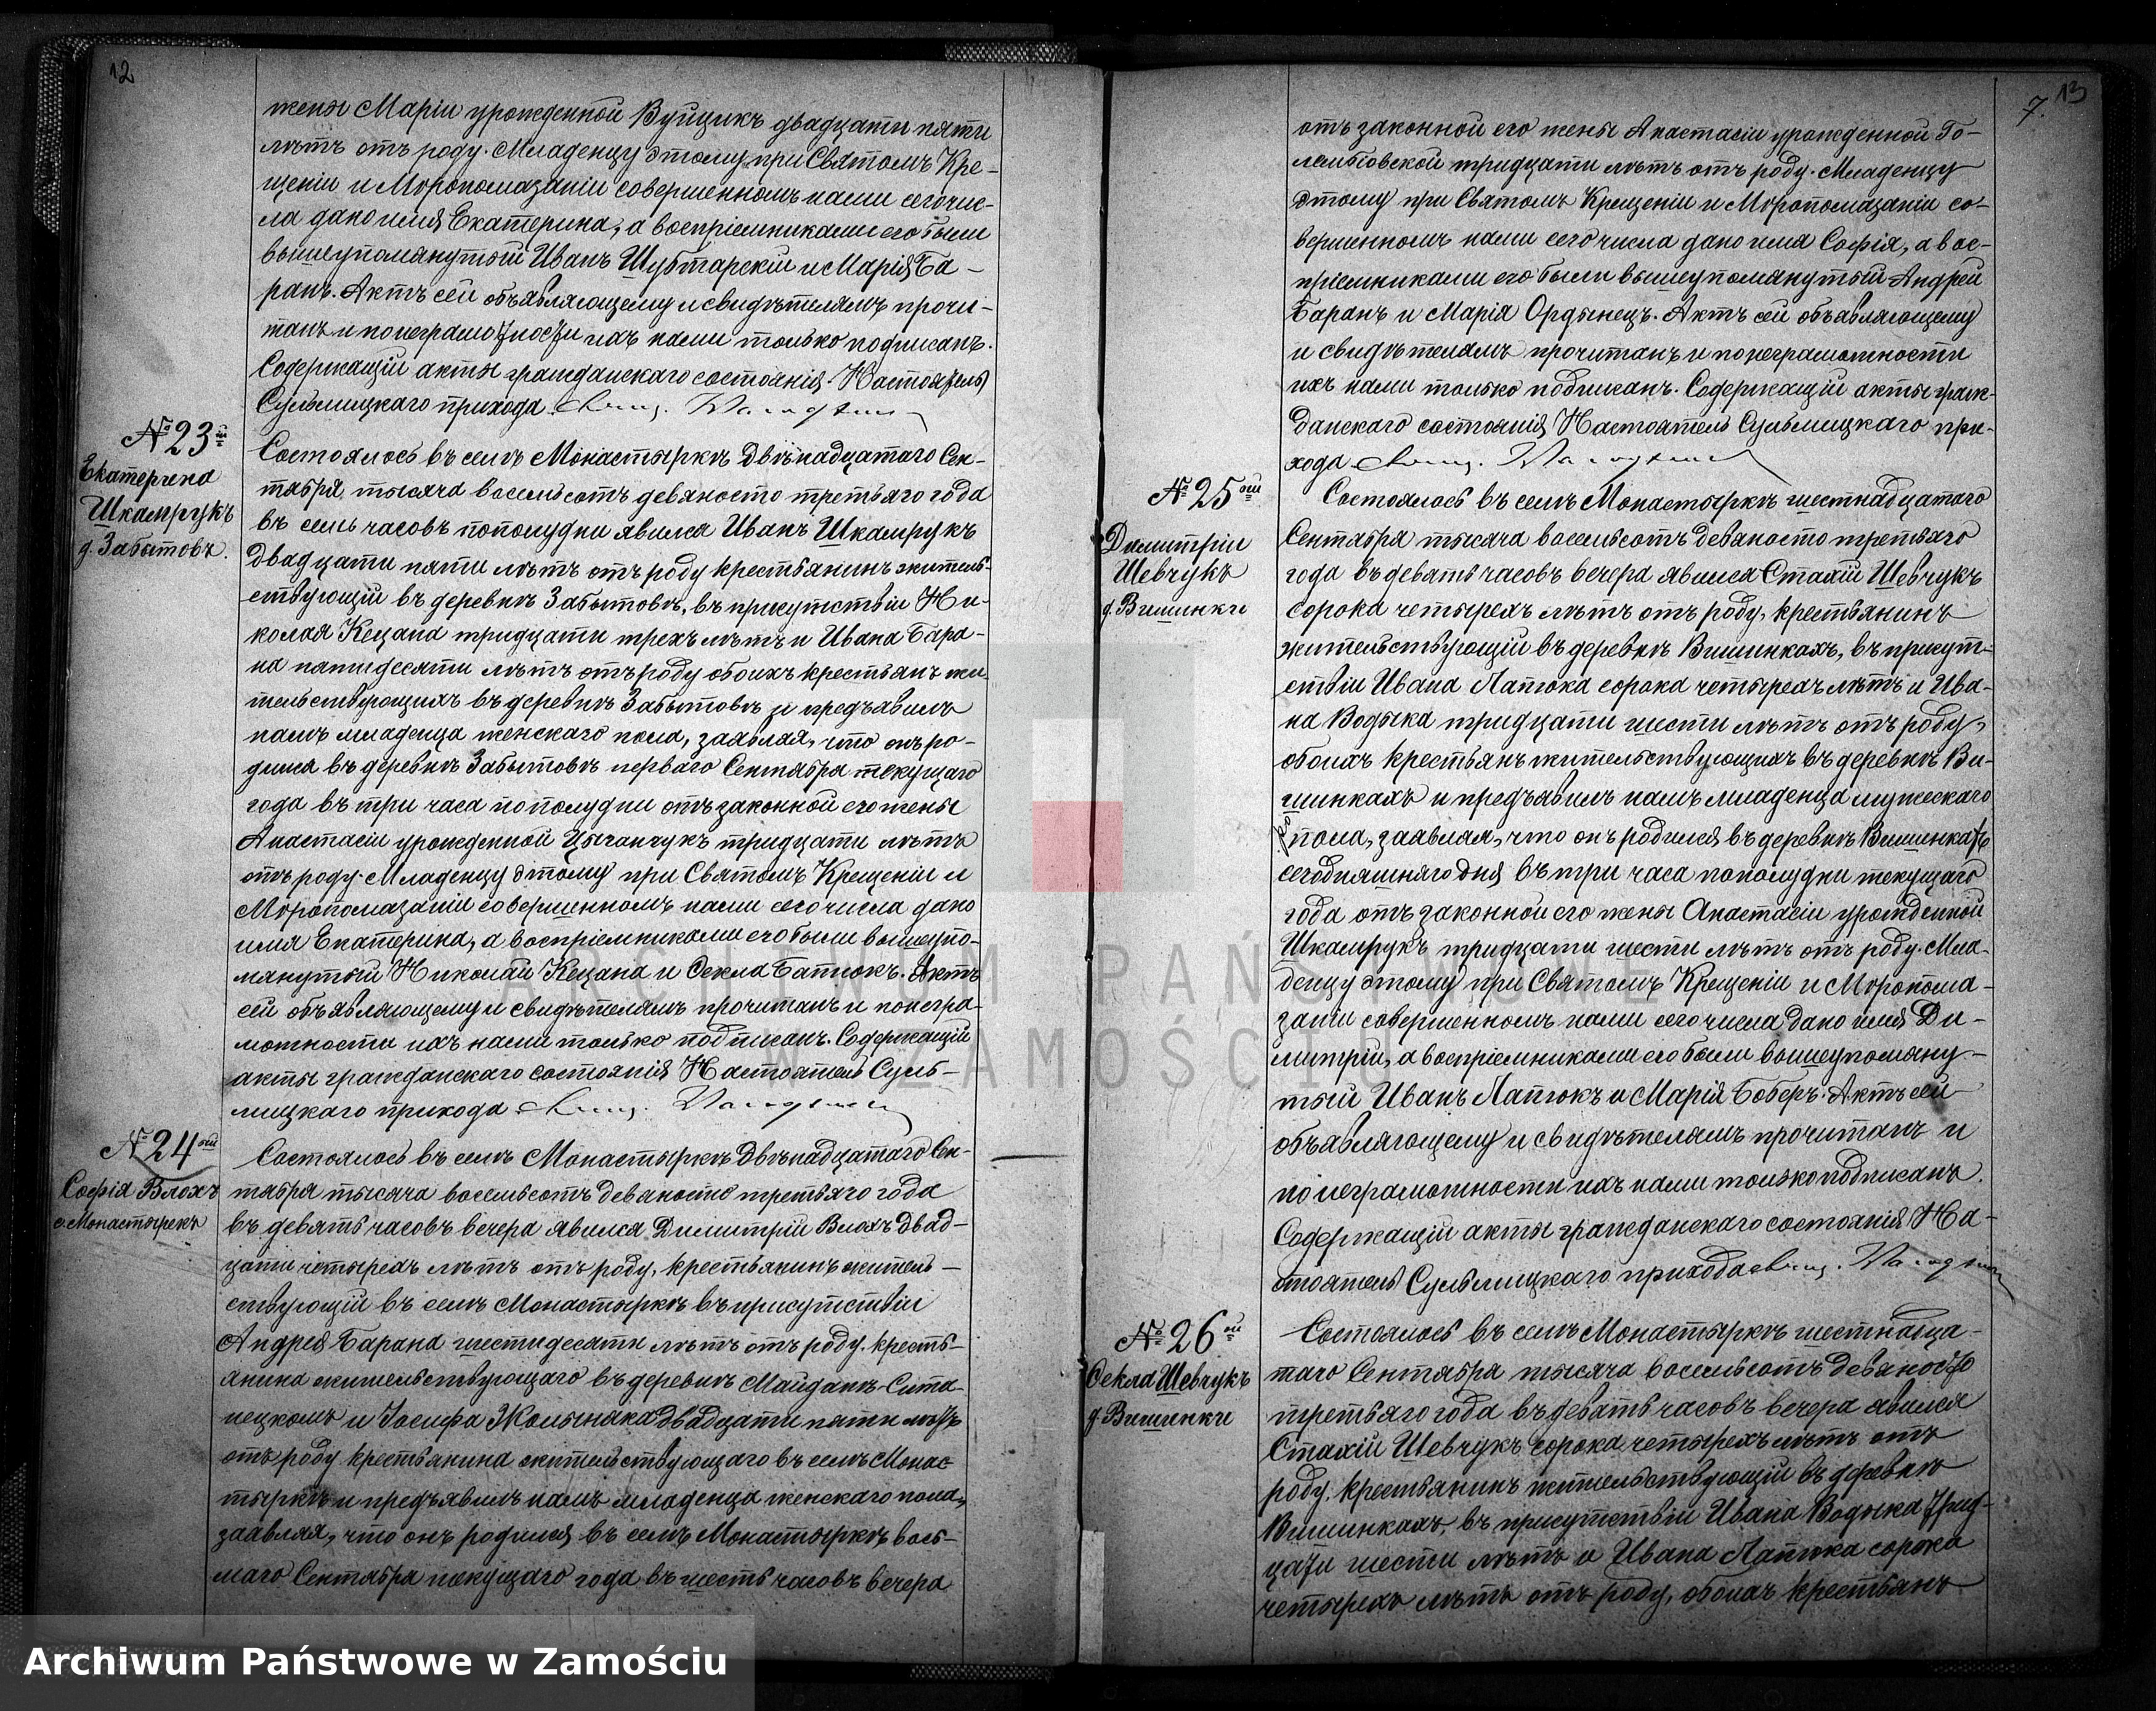 12
жены Маріи урожденной Вуйцикъ двадцати пяти
лѣтъ отъ роду. Младенцу этому при Святомъ Кре-
щеніи и Мѵропомазаніи совершенномъ нами сего чис-
ла дано имя Екатерина, а воспріемниками его были
вышеупомянутый Иванъ Шубтарскій и Марія Ба-
ранъ. Актъ сей объявляющему и свидѣтелямъ прочи-
танъ и по неграмотности ихъ нами только подписанъ.
Содержащій акты гражданскаго состоянія. Настоятель
Сульмицкаго прихода
№ 23й
Екатерина
Шкамрукъ
д. Забытовъ.
Состоялось въ селѣ Монастыркѣ двѣнадцатаго Сен-
тября тысяча восемьсотъ девяносто третьяго года
въ семь часовъ пополудни явился Иванъ Шкамрукъ
двадцати пяти лѣтъ отъ роду крестьянинъ житель-
ствующій въ деревнѣ Забытовѣ, въ присутствіи Ни-
колая Кецана тридцати трехъ лѣтъ и Ивана Бара-
на пятидесяти лѣтъ отъ роду обоихъ крестьянъ жи-
тельствующихъ въ деревнѣ Забытовѣ и предъявилъ
намъ младенца женскаго пола, заявляя, что онъ ро-
дился въ деревнѣ Забытовѣ перваго Сентября текущаго
года въ три часа пополудни отъ законной его жены
Анастасіи урожденной Цыганчукъ тридцати лѣтъ
отъ роду. Младенцу этому при Святомъ Крещеніи и
Мѵропомазаніи совершенномъ нами сего числа дано
имя Екатерина, а воспріемниками его были вышеупо-
мянутый Николай Кецана и Ѳекла Батюкъ. Актъ
сей объявляющему и свидѣтелямъ прочитанъ и по негра-
мотности ихъ нами только подписанъ. Содержащій
акты гражданскаго состоянія Настоятель Суль-
мицкаго прихода
№ 24ый
Софія Влохъ
с. Монастырекъ
Состоялось въ селѣ Монастыркѣ двѣнадцатаго Сен-
тября тысяча восемьсотъ девяносто третьяго года
въ девять часовъ вечера явился Димитрій Влохъ двад-
цати четырехъ лѣтъ отъ роду, крестьянинъ житель-
ствующій въ селѣ Монастыркѣ въ присутствіи
Андрея Барана шестидесяти лѣтъ отъ роду, кресть-
янина жительствующаго въ деревнѣ Майданѣ-Сита-
нецкомъ и Іосифа Жолыняка двадцати пяти лѣтъ
отъ роду крестьянина жительствующаго въ селѣ Монас-
тыркѣ и предъявилъ намъ младенца женскаго пола,
заявляя, что онъ родился въ селѣ Монастыркѣ вось-
маго Сентября текущаго года въ шесть часовъ вечера
7. 13
отъ законной его жены Анастасіи урожденной Го-
лембіовской тридцати лѣтъ отъ роду. Младенцу
этому при Святомъ Крещеніи и Мѵропомазаніи со-
вершенномъ нами сего числа дано имя Софія, а вос-
пріемниками его были вышеупомянутый Андрей
Баранъ и Марія Ордынецъ. Актъ сей объявляющему
и свидѣтелямъ прочитанъ и по неграмотности
ихъ нами только подписанъ. Содержащій акты граж-
данскаго состоянія Настоятель Сульмицкаго при-
хода
№ 25ый
Димитрій
Шевчукъ
д. Вишинки
Состоялось въ селѣ Монастыркѣ шестнадцатаго
Сентября тысяча восемьсотъ девяносто третьяго
года въ девять часовъ вечера явился Стахій Шевчукъ
сорока четырехъ лѣтъ отъ роду, крестьянинъ
жительствующій въ деревнѣ Вишинкахъ, въ присут-
ствіи Ивана Лапюка сорока четырехъ лѣтъ и Ива-
на Водыка тридцати шести лѣтъ отъ роду,
обоихъ крестьянъ жительствующихъ въ деревнѣ Ви-
шинкахъ и предъявилъ намъ младенца мужескаго
пола, заявляя, что онъ родился въ деревнѣ Вишинкахъ
сегодняшняго дня въ три часа пополудни текущаго
года отъ законной его жены Анастасіи урожденной
Шкамрукъ тридцати шести лѣтъ отъ роду. Мла-
денцу этому при Святомъ Крещеніи и Мѵропома-
заніи совершенномъ нами сего числа дано имя Ди-
митрій, а воспріемниками его были вышеупомяну-
тый Иванъ Лапюкъ и Марія Боберъ. Актъ сей
объявляющему и свидѣтелямъ прочитанъ и
по неграмотности ихъ нами только подписанъ.
Содержащій акты гражданскаго состоянія На-
стоятель Сульмицкаго прихода
№ 26ой
Ѳекла Шевчукъ
д. Вишинки
Состоялось въ селѣ Монастыркѣ шестнадца-
таго Сентября тысяча восемьсотъ девяносто
третьяго года въ девять часовъ вечера явился
Стахій Шевчукъ сорока четырехъ лѣтъ отъ
роду, крестьянинъ жительствующій въ деревнѣ
Вишинкахъ, въ присутствіи Ивана Водыка трид-
цати шести лѣтъ и Ивана Лапюка сорока
четырехъ лѣтъ отъ роду, обоихъ крестьянъ
ARCHIWUM PAŃSTWOWE
W ZAMOŚCIU
Archiwum Państwowe w Zamościu